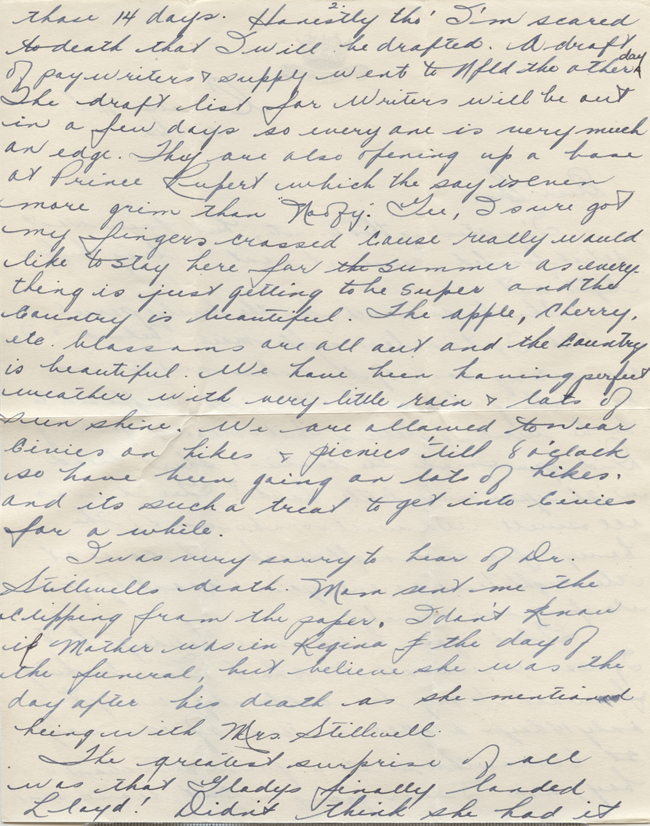 2.
than 14 days. Honestly tho' I'm scared
to death that I will be drafted. A draft
of paywriters & supply went to Nfld the other day
The draft list for Writers will be out
in a few days so everyone is very much
on edge. They are also opening up a base
at Prince Rupert which the say is even
more grim than "Noofy". Gee, I sure got
my fingers crossed 'cause really would
like to stay here for the summer as every-
thing is just getting to be super and the
Country is beautiful. The apple, cherry,
etc. blossoms are all out and the Country
is beautiful. We have been having perfect
weather with very little rain & lots of
sun shine. We are allowed to wear
Civies on hikes & picnics 'till 8 o'clock
so have been going on lots of hikes.
and its such a treat to get into Civies
for a while.
I was very sorry to hear of Dr.
Stillwells death. Mom sent me the
clipping from the paper. I don't know
if Mother was in Regina the day of
the funeral, but believe she was the
day after his death as she mentioned
being with Mrs. Stillwell.
The greatest surprise of all
was that Gladys finally landed
Lloyd! Didn't think she had it